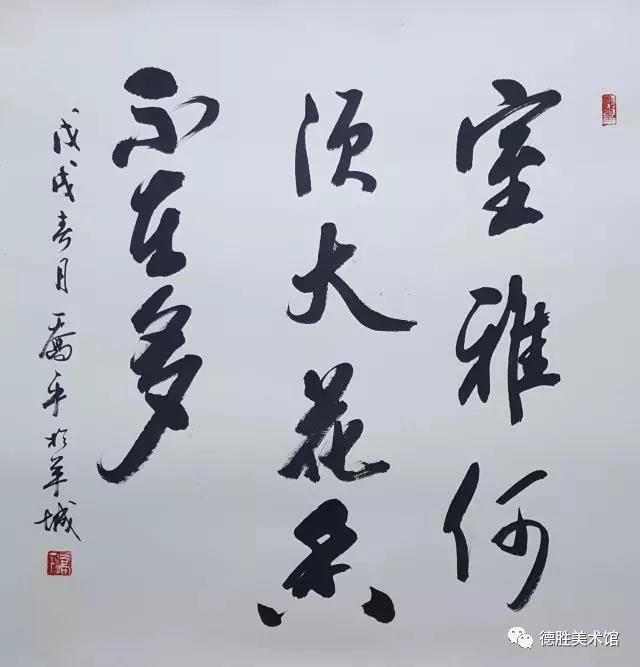 室雅何
须大花香
不在多
戊戌春月乔平於羊城
德胜美术馆